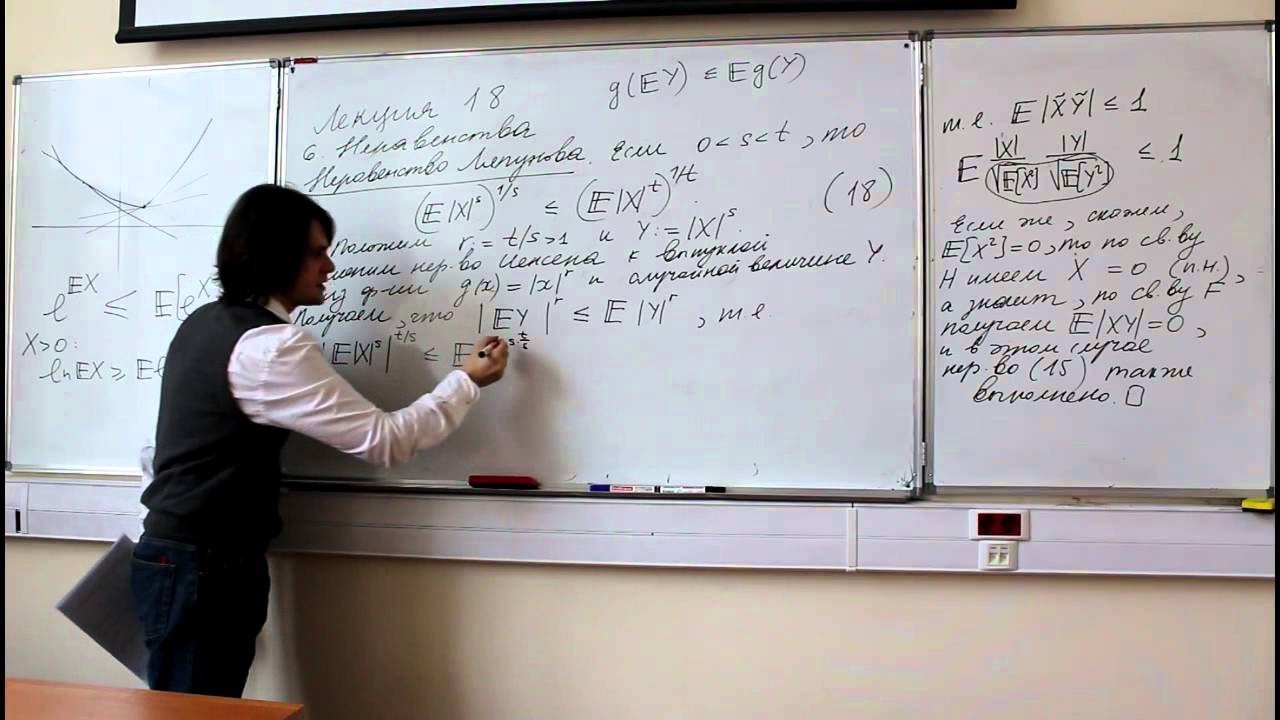 e^{EX} ≤ E[e^X
X>0:
ln EX ≥ E
Лекция 18
g(𝔼Y) ≤ 𝔼g(Y)
6. Неравенства
Неравенство Ляпунова. Если 0<s<t, то
(𝔼|X|^s)^{1/s} ≤ (𝔼|X|^t)^{1/t}. (18)
Положим r:=t/s>1 и Y:=|X|^s.
нер-во Йенсена к выпуклой
ф-ии g(x)=|x|^r и случайной величине Y.
Получаем, что |𝔼Y|^r ≤ 𝔼|Y|^r, т.е.
|𝔼|X|^s|^{t/s} ≤ 𝔼
т.е. 𝔼|X̃Ỹ| ≤ 1
𝔼 |X|/√𝔼[X²] |Y|/√𝔼[Y²] ≤ 1
Если же, скажем,
𝔼[X²]=0, то по св-ву
H имеем X = 0 (п.н.),
а значит, по св-ву F
получаем 𝔼|XY|=0,
и в этом случае
нер-во (15) также
выполнено. □